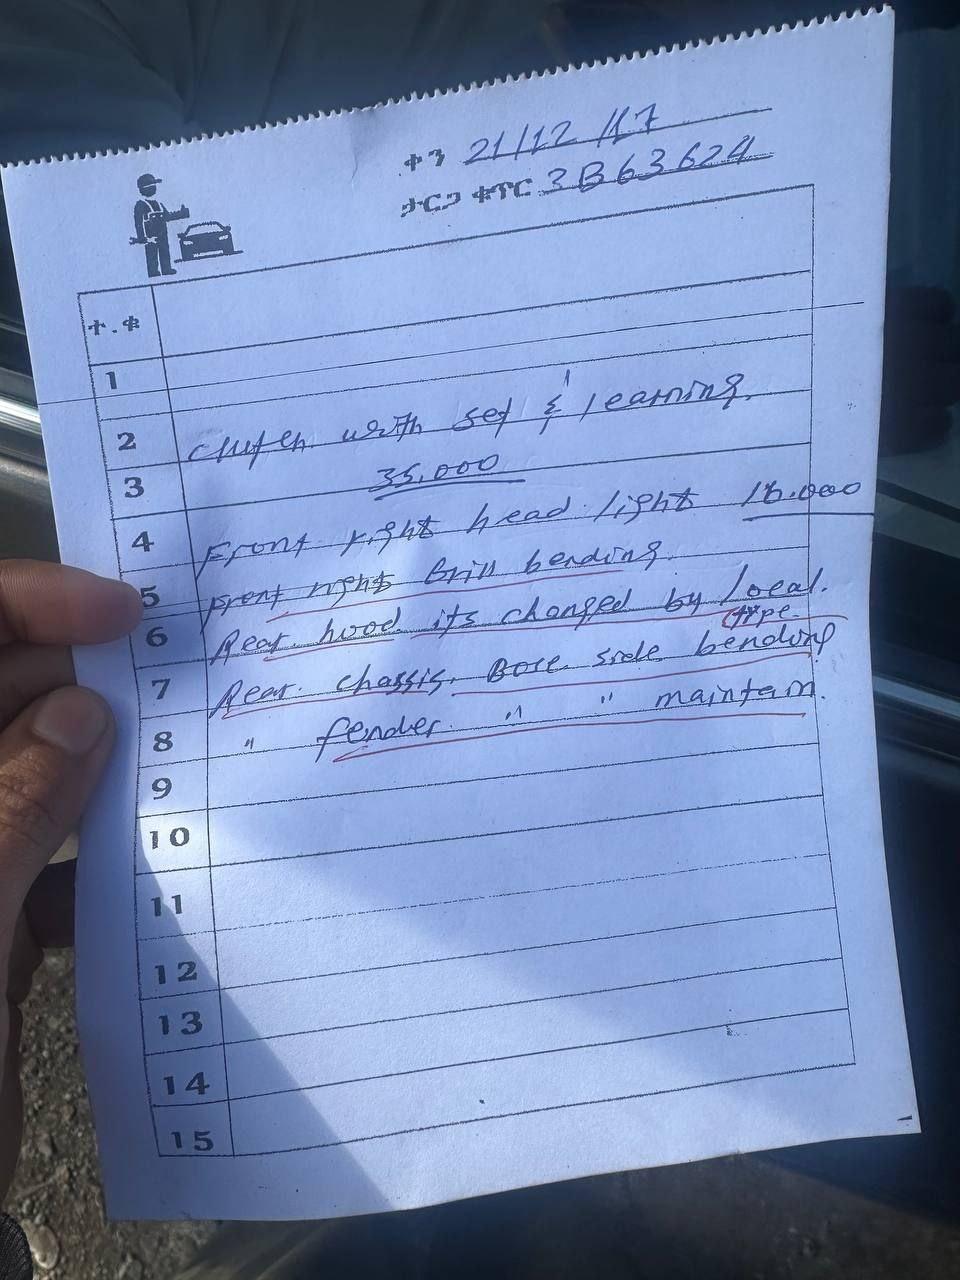 ቀን 21/12/17
ታርጋ ቁጥር 3B63624
ተ.ቁ
1
2 clutch with set & learning.
3 35.000
4 Front right head light 18.000
5 Front right Grill bending.
6 Rear hood its changed by local.
type.
7 Rear chassis. Bote side bending
8 " fender " " maintain.
9
10
11
12
13
14
15